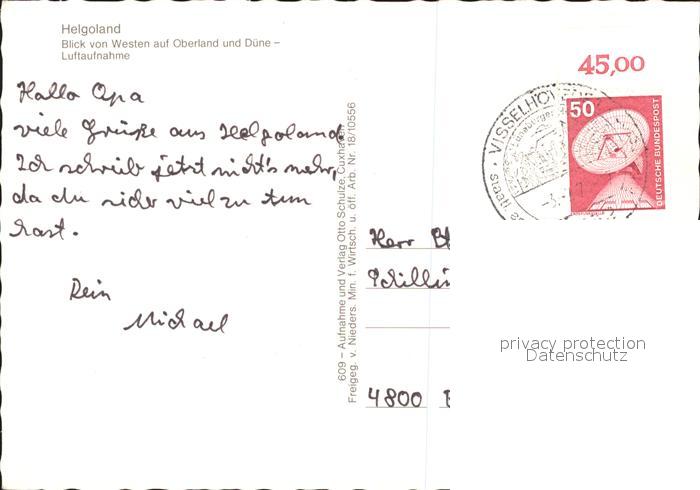 Helgoland
Blick von Westen auf Oberland und Düne –
Luftaufnahme
Hallo Opa
viele Grüße aus Helgoland.
Ich schreib jetzt nicht's mehr,
da du sicher viel zu tun
hast.
Dein
Michael
609 – Aufnahme und Verlag Otto Schulze, Cuxhaven
Freigeg. v. Nieders. Min. f. Wirtsch. u. öff. Arb. Nr. 18/10556
45,00
VISSELHÖVEDE
50
DEUTSCHE BUNDESPOST
Herr
Schillin
4800
privacy protection
Datenschutz